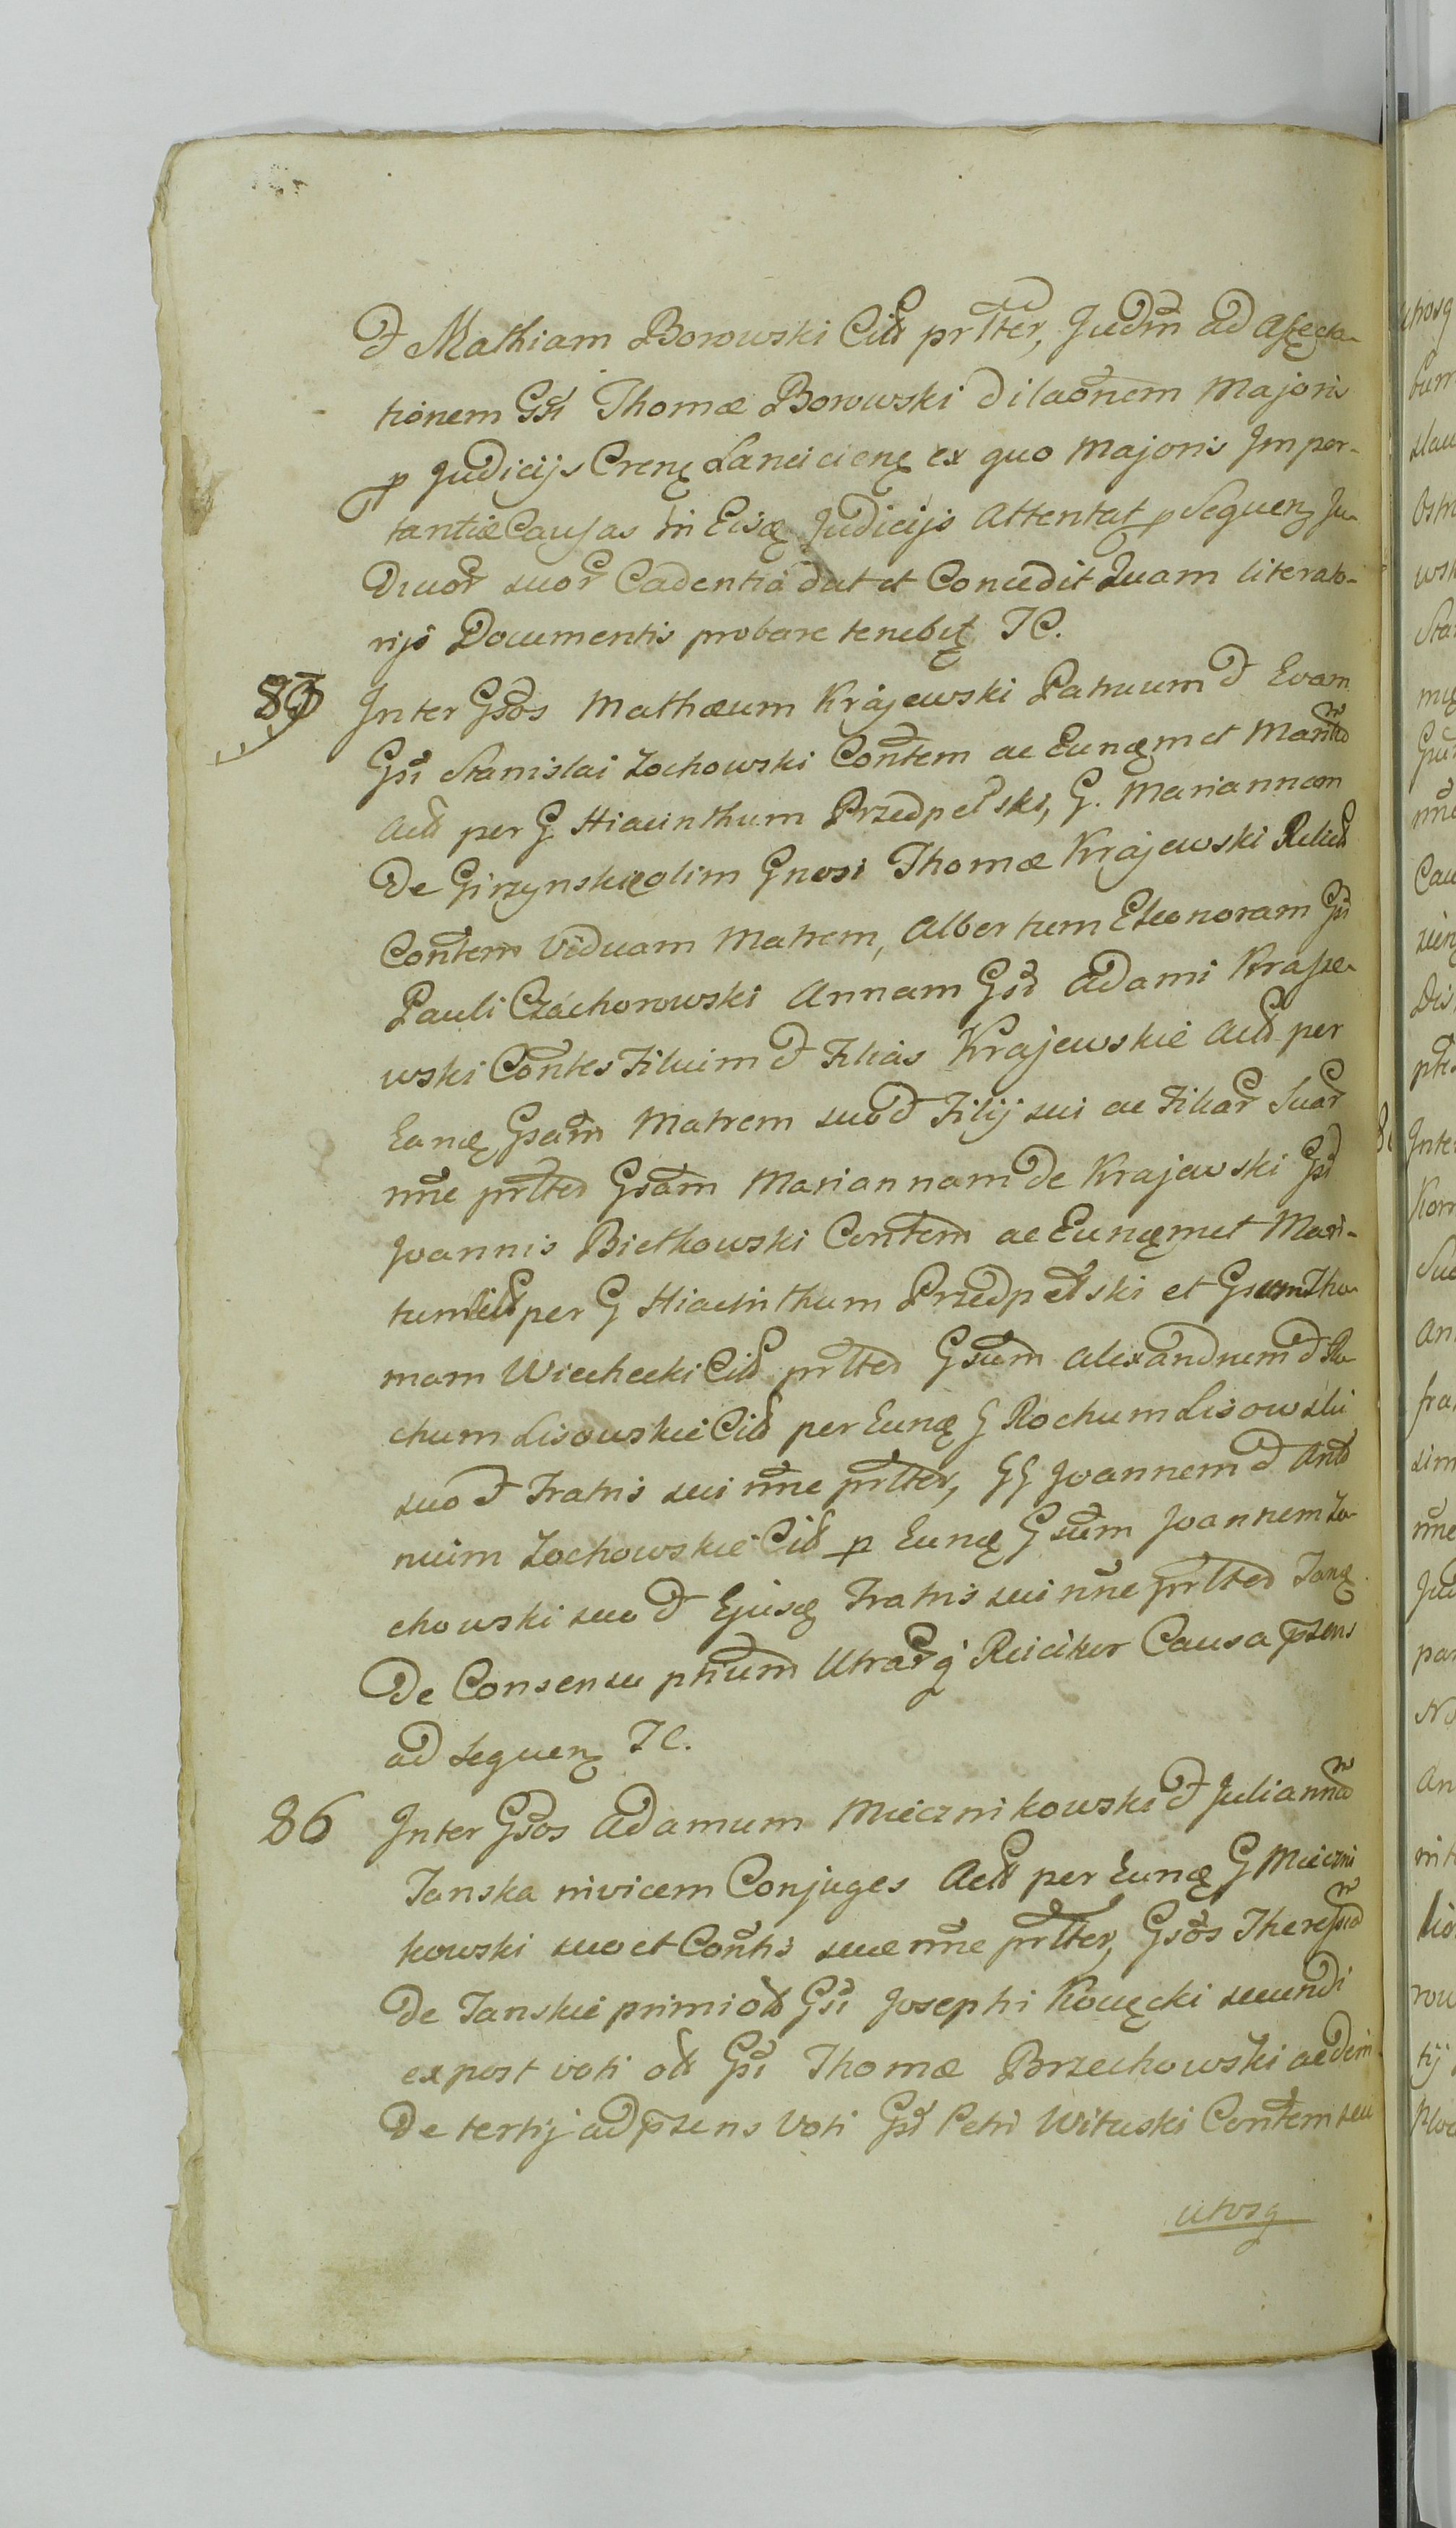 et Mathiam Borowski Citt prltter, Judm ad affecta-
tionem Gsi Thomæ Borowski dilaonem Majoris
p Judicijs Crens Lancicien ex quo Majoris Impor-
tantiæ Causas in Eisd Judicijs Attentat p Sequen Ju-
dicior suor Cadentia dat et Concedit Quam literato-
rijs Documentis probare tenebit IC.
85 Inter Gsos Mathæum Krajewski Patruum et Evam
Gsi Stanislai Zochowski Contem ac Eundemet Maritũ
Actt per G Hiacinthum Przedpełski, G. Mariannam
De Girzynskie olim Gnosi Thomæ Krajewski Relict
Contem Viduam Matrem, Albertum Eleonoram Gsi
Pauli Czachorowski Annam Gsi Adami Krasze-
wski Contes Filium et Filias Krajewskie Actt per
Eand Gsam Matrem suo et Filij sui ac Filiar Suar
nne prltter Gsam Mariannam de Krajewski Gsi
Joannis Bietkowski Contem ac Eundemet Mari-
tum Citt per G Hiacinthum Przedpełski et Gsum Tho-
mam Wiechecki Citt prltter Gsum Alexandrum et Ro-
chum Lisowskie Citt per Eund G Rochum Lisowski
suo et Fratris sui nne prltter, GG Joannem et Anto
nium Zochowskie Citt p Eund Gsum Joannem Zo-
chowski suo et Ejusd Fratris sui nne prltter Tand
De Consensu ptium Utrarq Reicitur Causa pzens
ad sequen IC.
86 Inter Gsos Adamum Miecznikowski et Juliannã
Tanska nivicem Conjuges Actt per Eund G Mieczni
kowski suo et Contis suæ nne prltter, Gsos Theressiã
De Tanskie primi ott Gsi Josephi Kowęcki secundi
ex post voti ott Gsi Thomæ Brzechowski ac dein
De tertij ad pzens Voti Gsi Petri Wituski Contem seu
utrosq